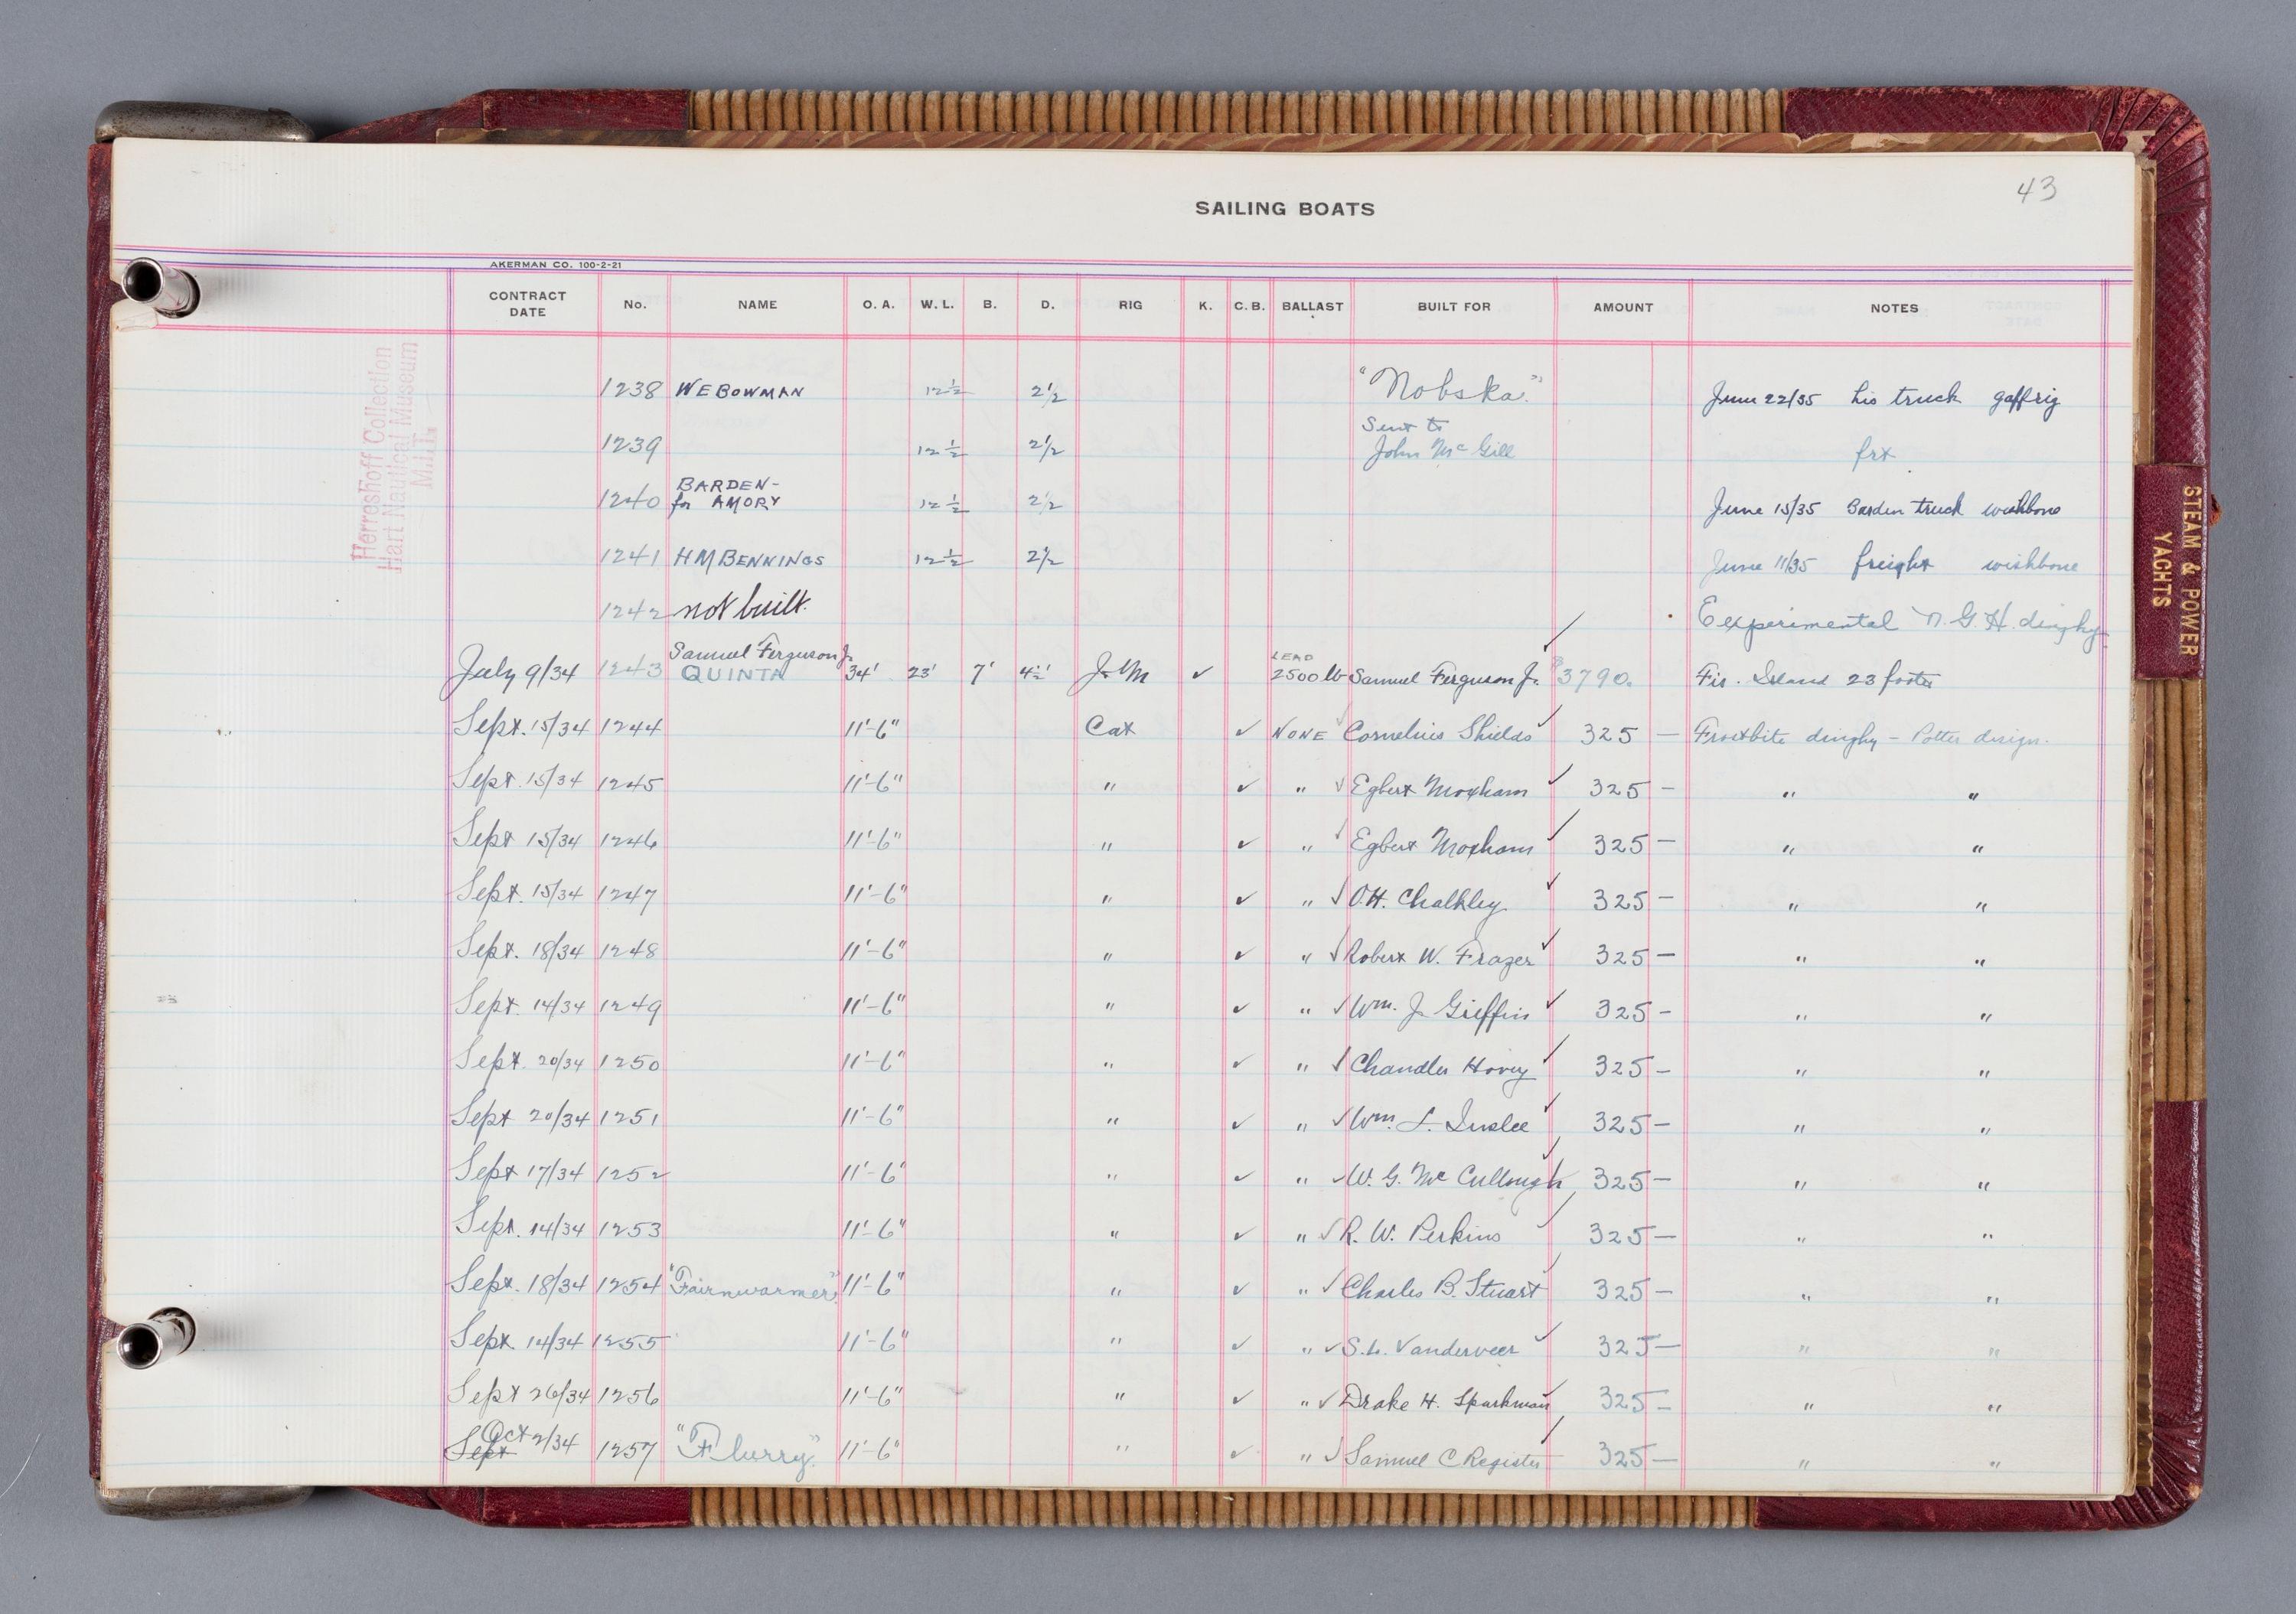 43
SAILING BOATS
AKERMAN CO. 100-2-21
CONTRACT DATE No. NAME O. A. W. L. B. D. RIG K. C. B. BALLAST BUILT FOR AMOUNT NOTES
1238 WE BOWMAN 12 1/2 2 1/2 "Nobska." June 22/35 his truck gaff rig
1239 12 1/2 2 1/2 Sent to John McGill frt
1240 BARDEN- for AMORY 12 1/2 2 1/2 June 15/35 Barden truck wishbone
1241 HM BENNINGS 12 1/2 2 1/2 June 11/35 freight wishbone
1242 not built. Experimental N.G.H. dinghy
July 9/34 1243 Samuel Ferguson Jr. QUINTA 34' 23' 7' J+M ✓ LEAD 2500 lb Samuel Ferguson Jr. ✓ $3790. Fis. Island 23 footer
Sept. 15/34 1244 11'-6" Cat ✓ NONE ✓ Cornelius Shields ✓ 325 — Frostbite dinghy - Potter design.
Sept. 15/34 1245 11'-6" " ✓ " ✓ Egbert Moxham ✓ 325 — " "
Sept 15/34 1246 11'-6" " ✓ " ✓ Egbert Moxham ✓ 325 — " "
Sept. 15/34 1247 11'-6" " ✓ " ✓ O.H. Chalkley ✓ 325 — " "
Sept. 18/34 1248 11'-6" " ✓ " ✓ Robert W. Frazer ✓ 325 — " "
Sept. 14/34 1249 11'-6" " ✓ " ✓ Wm. J. Griffin ✓ 325 — " "
Sept. 20/34 1250 11'-6" " ✓ " ✓ Chandler Hovey ✓ 325 — " "
Sept 20/34 1251 11'-6" " ✓ " ✓ Wm. L. Inslee ✓ 325 — " "
Sept 17/34 1252 11'-6" " ✓ " ✓ W. G. McCullough ✓ 325 — " "
Sept. 14/34 1253 11'-6" " ✓ " ✓ R. W. Perkins ✓ 325 — " "
Sept. 18/34 1254 "Fairnwarmer" 11'-6" " ✓ " ✓ Charles B. Stuart ✓ 325 — " "
Sept. 14/34 1255 11'-6" " ✓ " ✓ S.L. Vanderveer ✓ 325 — " "
Sept 26/34 1256 11'-6" " ✓ " ✓ Drake H. Sparkman ✓ 325 — " "
Sept Oct 2/34 1257 "Flurry." 11'-6" " ✓ " ✓ Samuel C Register ✓ 325 — " "
Herreshoff Collection
Hart Nautical Museum
M.I.T.
STEAM & POWER
YACHTS